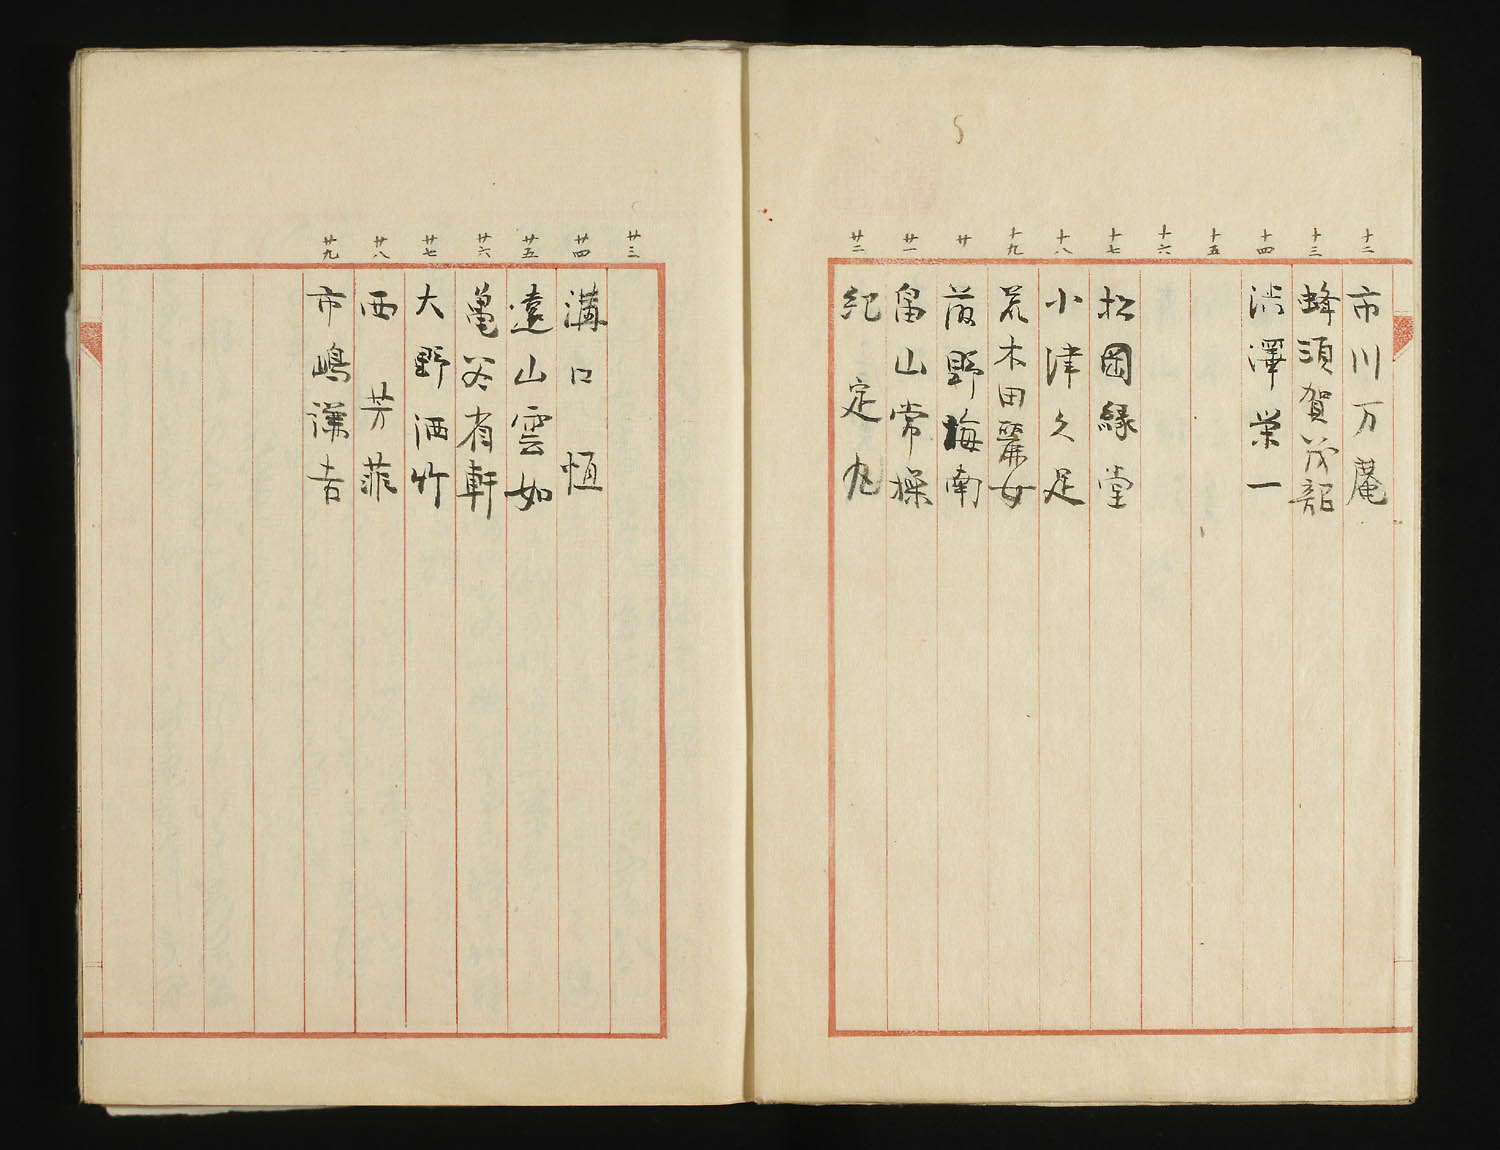 十二 市川万菴
十三 蜂須賀茂韶
十四 渋澤栄一
十五
十六
十七 松岡縁堂
十八 小津久足
十九 荒木田麗女
廿 前野梅南
廿一 畠山常操
廿二 紀定丸
廿三
廿四 溝口恒
廿五 遠山雲如
廿六 亀谷省軒
廿七 大野洒竹
廿八 西芳菲
廿九 市嶋謙吉